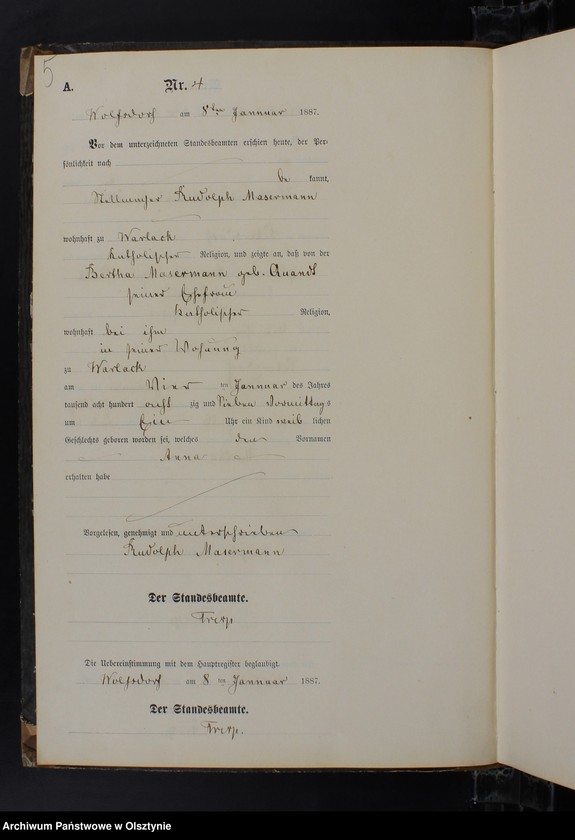 5
A. Nr. 4
Wolfsdorf am 8ten Januar 1887.
Vor dem unterzeichneten Standesbeamten erschien heute, der Per-
sönlichkeit nach
be kannt,
Rudolph Masermann
wohnhaft zu Warlack
katholischer Religion, und zeigte an, daß von der
Bertha Masermann geb. Quandt
seiner Ehefrau
katholischer Religion,
wohnhaft bei ihm
in seiner Wohnung
zu Warlack
am Vier ten Januar des Jahres
tausend acht hundert acht zig und Sieben Vormittags
um Ein Uhr ein Kind weib lichen
Geschlechts geboren worden sei, welches den Vornamen
Anna
erhalten habe
Vorgelesen, genehmigt und unterschrieben
Rudolph Masermann
Der Standesbeamte.
Die Uebereinstimmung mit dem Hauptregister beglaubigt.
Wolfsdorf am 8 ten Januar 1887.
Der Standesbeamte.
Archiwum Państwowe w Olsztynie